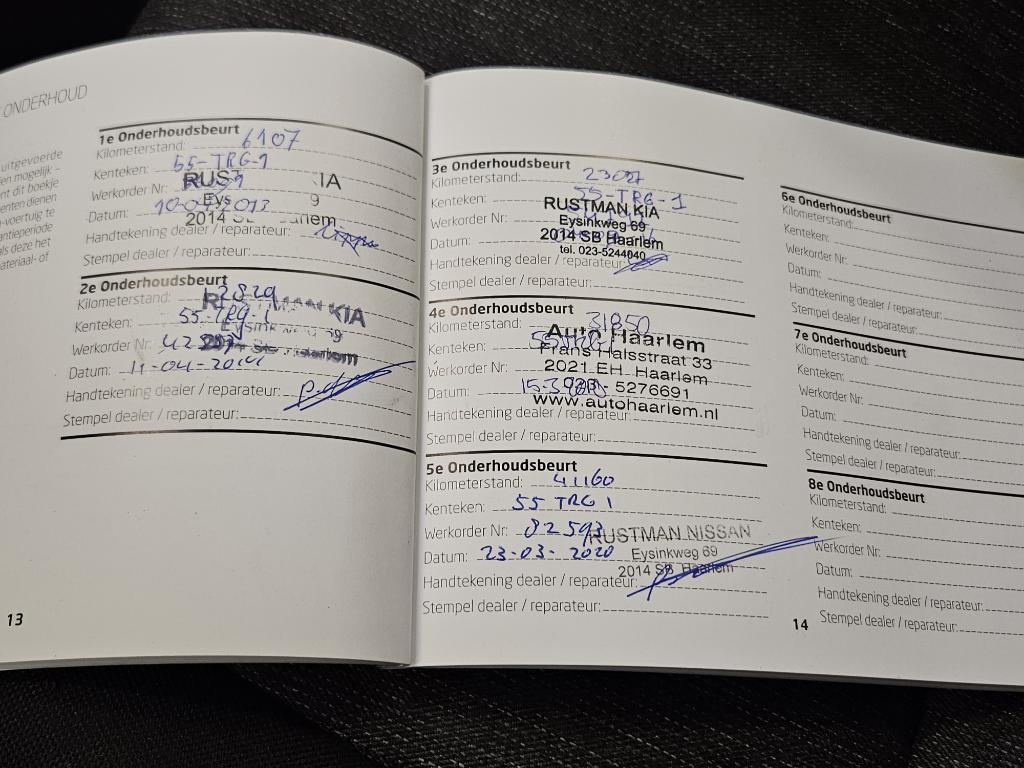 ONDERHOUD
uitgevoerde
en mogelijk –
nt dit boekje
enten dienen
-voertuig te
antieperiode
als deze het
ateriaal- of
1e Onderhoudsbeurt
Kilometerstand: 6107
Kenteken: 55-TRG-1
RUST IA
Werkorder Nr:
Eys 9
Datum: 2013
2014 SB Haarlem
Handtekening dealer / reparateur:
Stempel dealer / reparateur:
2e Onderhoudsbeurt
Kilometerstand: 12829
RUSTMAN KIA
Kenteken: 55-TRG-1
Eysinkweg 69
Werkorder Nr:
2014 SB Haarlem
Datum: 11-04-2014
Handtekening dealer / reparateur:
Stempel dealer / reparateur:
13
3e Onderhoudsbeurt
Kilometerstand:
Kenteken: 55-TRG-1
RUSTMAN KIA
Werkorder Nr:
Eysinkweg 69
Datum:
2014 SB Haarlem
tel. 023-5244040
Handtekening dealer / reparateur:
Stempel dealer / reparateur:
4e Onderhoudsbeurt
Kilometerstand: 31850
Auto Haarlem
Kenteken: 55TRG1
Frans Halsstraat 33
Werkorder Nr:
2021 EH Haarlem
Datum:
023 - 5276691
www.autohaarlem.nl
Handtekening dealer / reparateur:
Stempel dealer / reparateur:
5e Onderhoudsbeurt
Kilometerstand: 41160
Kenteken: 55 TRG 1
Werkorder Nr: 82593
RUSTMAN NISSAN
Datum: 23-03-2020
Eysinkweg 69
2014 SB Haarlem
Handtekening dealer / reparateur:
Stempel dealer / reparateur:
6e Onderhoudsbeurt
Kilometerstand:
Kenteken:
Werkorder Nr:
Datum:
Handtekening dealer / reparateur:
Stempel dealer / reparateur:
7e Onderhoudsbeurt
Kilometerstand:
Kenteken:
Werkorder Nr:
Datum:
Handtekening dealer / reparateur:
Stempel dealer / reparateur:
8e Onderhoudsbeurt
Kilometerstand:
Kenteken:
Werkorder Nr:
Datum:
Handtekening dealer / reparateur:
Stempel dealer / reparateur:
14